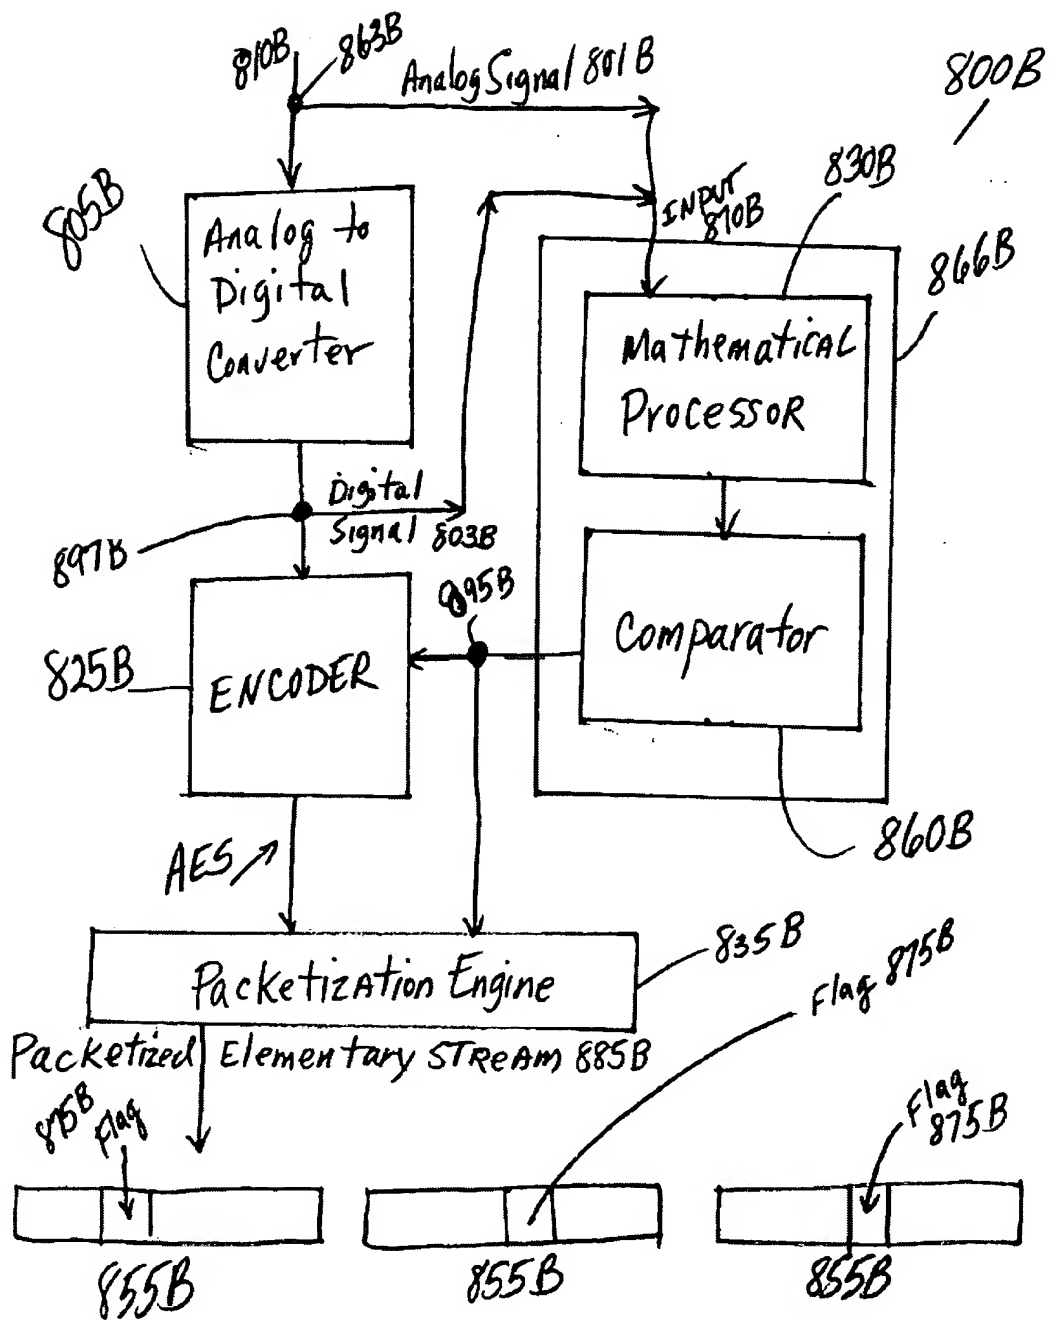 810B
863B
Analog Signal 801B
800B
805B
Analog to
Digital
Converter
INPUT
870B
830B
866B
Mathematical
Processor
Digital
Signal 803B
897B
895B
825B
ENCODER
Comparator
860B
AES
Packetization Engine
835B
Flag 875B
Packetized Elementary STREAM 885B
875B
Flag
Flag
875B
855B
855B
855B